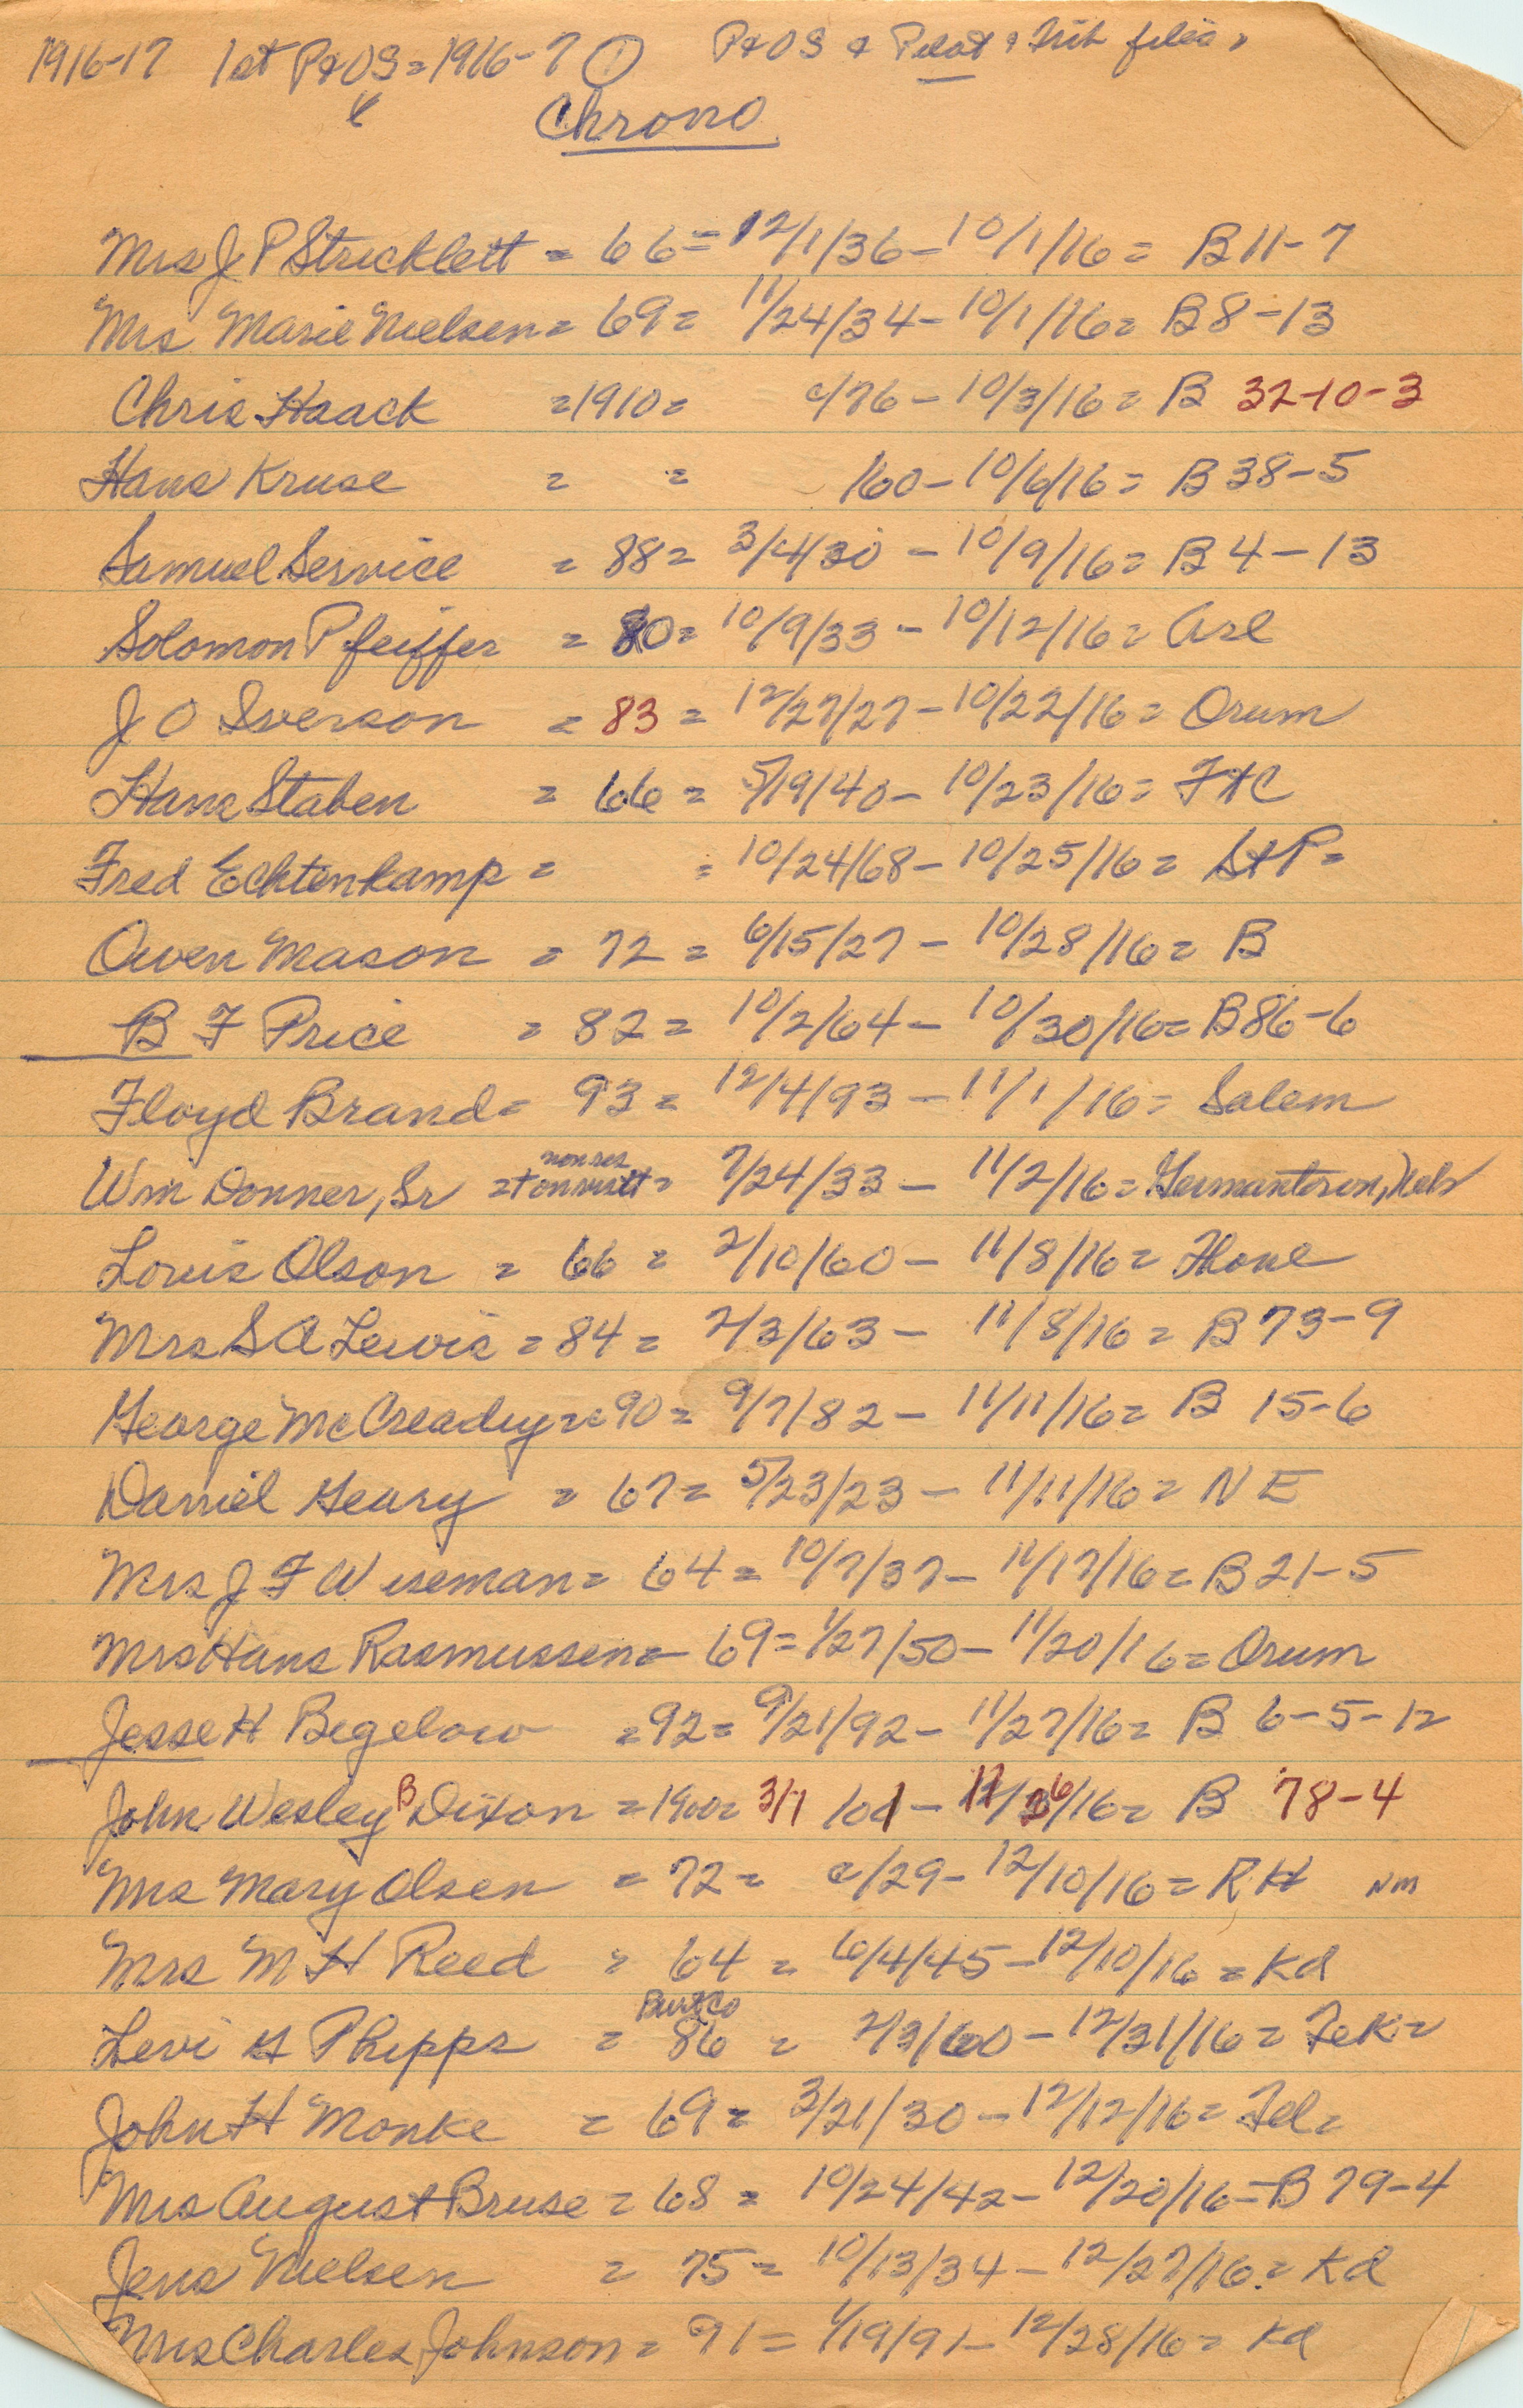 1916-17 1st P&OS = 1916-7 ① P&OS & Pilot & Trib files,
Chrono
Mrs J P Stricklett = 66 = 12/1/36 - 10/1/16 = B 11-7
Mrs Marie Nielsen = 69 = 11/24/34 - 10/1/16 = B 8-13
Chris Haack = 1910 = c/76 - 10/3/16 = B 32-10-3
Hans Kruse = = /60 - 10/6/16 = B 38-5
Samuel Service = 88 = 3/4/30 - 10/9/16 = B 4-13
Solomon Pfeiffer = 80 = 10/9/33 - 10/12/16 = Arl
J O Iverson = 83 = 12/27/27 - 10/22/16 = Orum
Hans Staben = 66 = 5/19/40 - 10/23/16 = FtC
Fred Echtenkamp = = 10/24/68 - 10/25/16 = StP =
Owen Mason = 72 = 6/15/27 - 10/28/16 = B
B F Price = 82 = 10/2/64 - 10/30/16 = B 86-6
Floyd Brand = 93 = 12/4/93 - 11/1/16 = Salem
non res
Wm Donner, Sr = + on visit = 7/24/33 - 11/2/16 = Germantown, Neb
Louis Olson = 66 = 2/10/60 - 11/8/16 =
Mrs S A Lewis = 84 = 2/3/63 - 11/8/16 = B 73-9
George McCready = c 90 = 9/7/82 - 11/11/16 = B 15-6
Daniel Geary = 67 = 5/23/23 - 11/11/16 = N E
Mrs J F Wiseman = 64 = 10/7/37 - 11/17/16 = B 21-5
Mrs Hans Rasmussen = 69 = 1/27/50 - 11/20/16 = Orum
Jesse H Begelow = 92 = 9/21/92 - 11/27/16 = B 6-5-12
John Wesley B Dixon = 1900 = 3/1 /01 - 11/36/16 = B 78-4
Mrs Mary Olsen = 72 = c/29 - 12/10/16 = R H NM
Mrs M H Reed = 64 = 6/4/45 - 12/10/16 = Kd
Burt Co
Levi H Phipps = 86 = 2/3/60 - 12/31/16 = Tek =
John H Monke = 69 = 3/21/30 - 12/12/16 = Tel =
Mrs August Bruse = 68 = 10/24/42 - 12/20/16 = B 79-4
Jens Nielsen = 75 = 10/13/34 - 12/27/16 = Kd
Mrs Charles Johnson = 91 = 1/19/91 - 12/28/16 = Kd